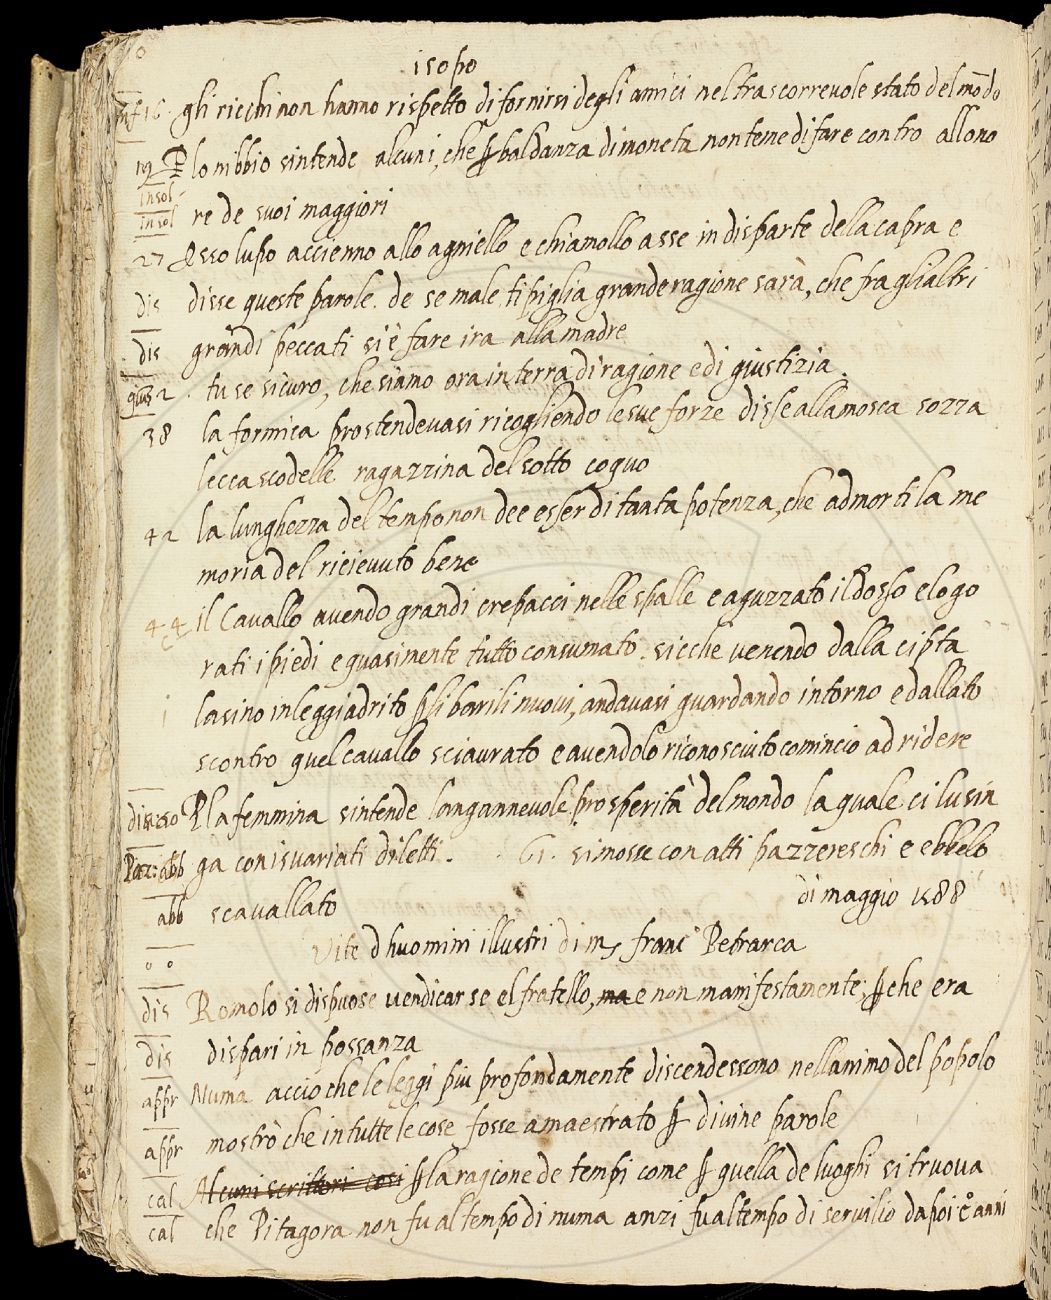 isopo
gli ricchi non hanno rispetto di fornirsi degli amici nel trascorrevole stato del mōdo
lo nibbio sintende alcuni, che ꝑ baldanza di moneta non teme di fare contro allono
insol
insol re de suoi maggiori
27 Esso lupo accienno allo agniello e chiamollo asse in disparte della capra e
dis disse queste parole. de se male ti piglia grande ragione sarà, che fra glialtri
dis grandi peccati si è fare ira alla madre
gius 2 tu se sicuro, che siamo ora in terra di ragione e di giustizia.
38 la formica prostendevasi ricogliendo le sue forze disse alla mosca sozza
lecca scodelle ragazzina del sotto coquo
42 la lunghezza del tempo non dee esser di tanta potenza, che admorti la me
moria del ricievuto bene
44 il Cavallo avendo grandi crepacci nelle spalle e aguzzato il dosso e logo
rati i piedi e quasimente tutto consumato. sicche venendo dalla cipta
i lasino inleggiadrito ꝑ li barili nuovi, andavasi guardando intorno e dallato
scontro quel cavallo sciaurato e avendolo riconosciuto comincio ad ridere
ꝑ la femmina sintende longannevole prosperità del mondo la quale ci lusin
Paz: abb ga con isvariati diletti. 61. si mosse con atti pazzereschi e ebbelo
abb scavallato di maggio 1588
Vite d huomini illustri di mſ franc° Petrarca
dis Romolo si dispuose vendicarse el fratello, ma e non manifestamente; ꝑche era
dis dispari in possanza
appr Numa accio che le leggi piu profondamente discendessono nellanimo del popolo
appr mostrò che in tutte le cose fosse amaestrato ꝑ divine parole
cal Alcuni scrittori cosi ꝑ la ragione de tempi come ꝑ quella de luoghi si truova
cal che Pitagora non fu al tempo di numa anzi fu al tempo di servilio dapoi anni